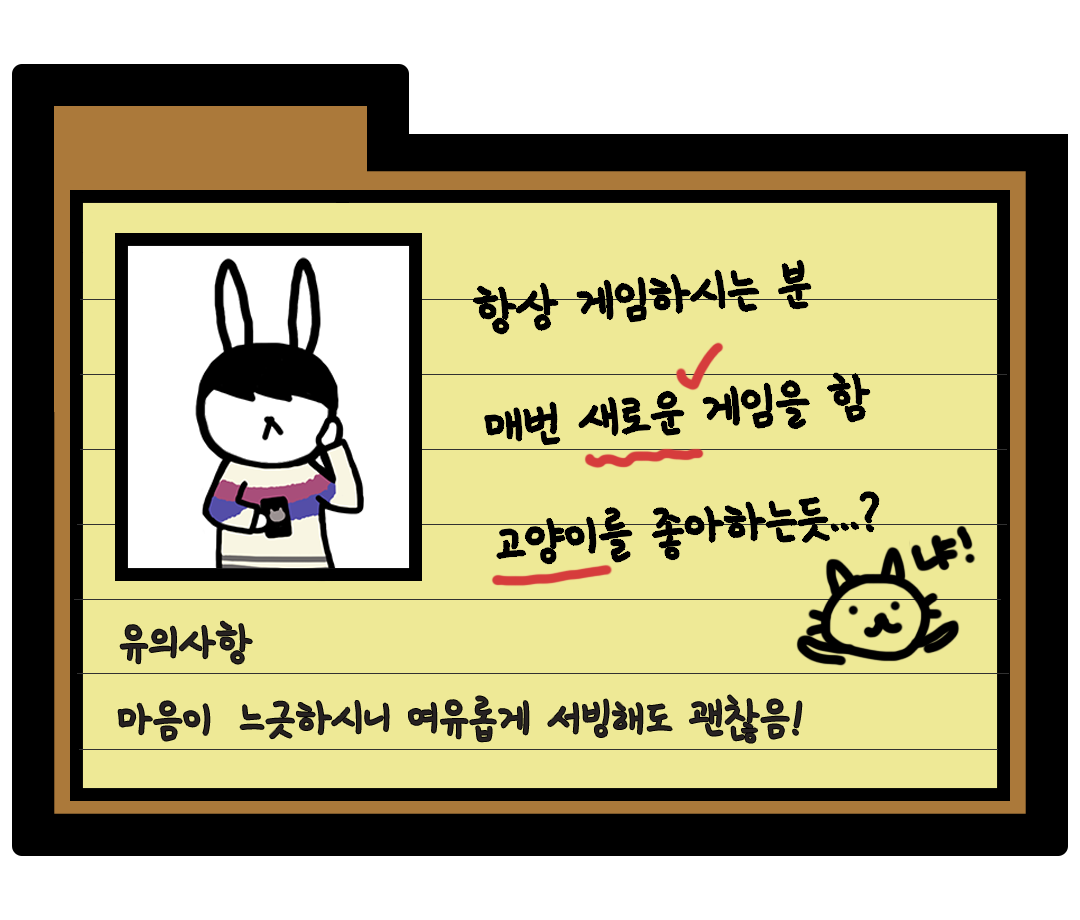 항상 게임하시는 분
매번 새로운 게임을 함
고양이를 좋아하는듯...?
냐!
유의사항
마음이 느긋하시니 여유롭게 서빙해도 괜찮음!